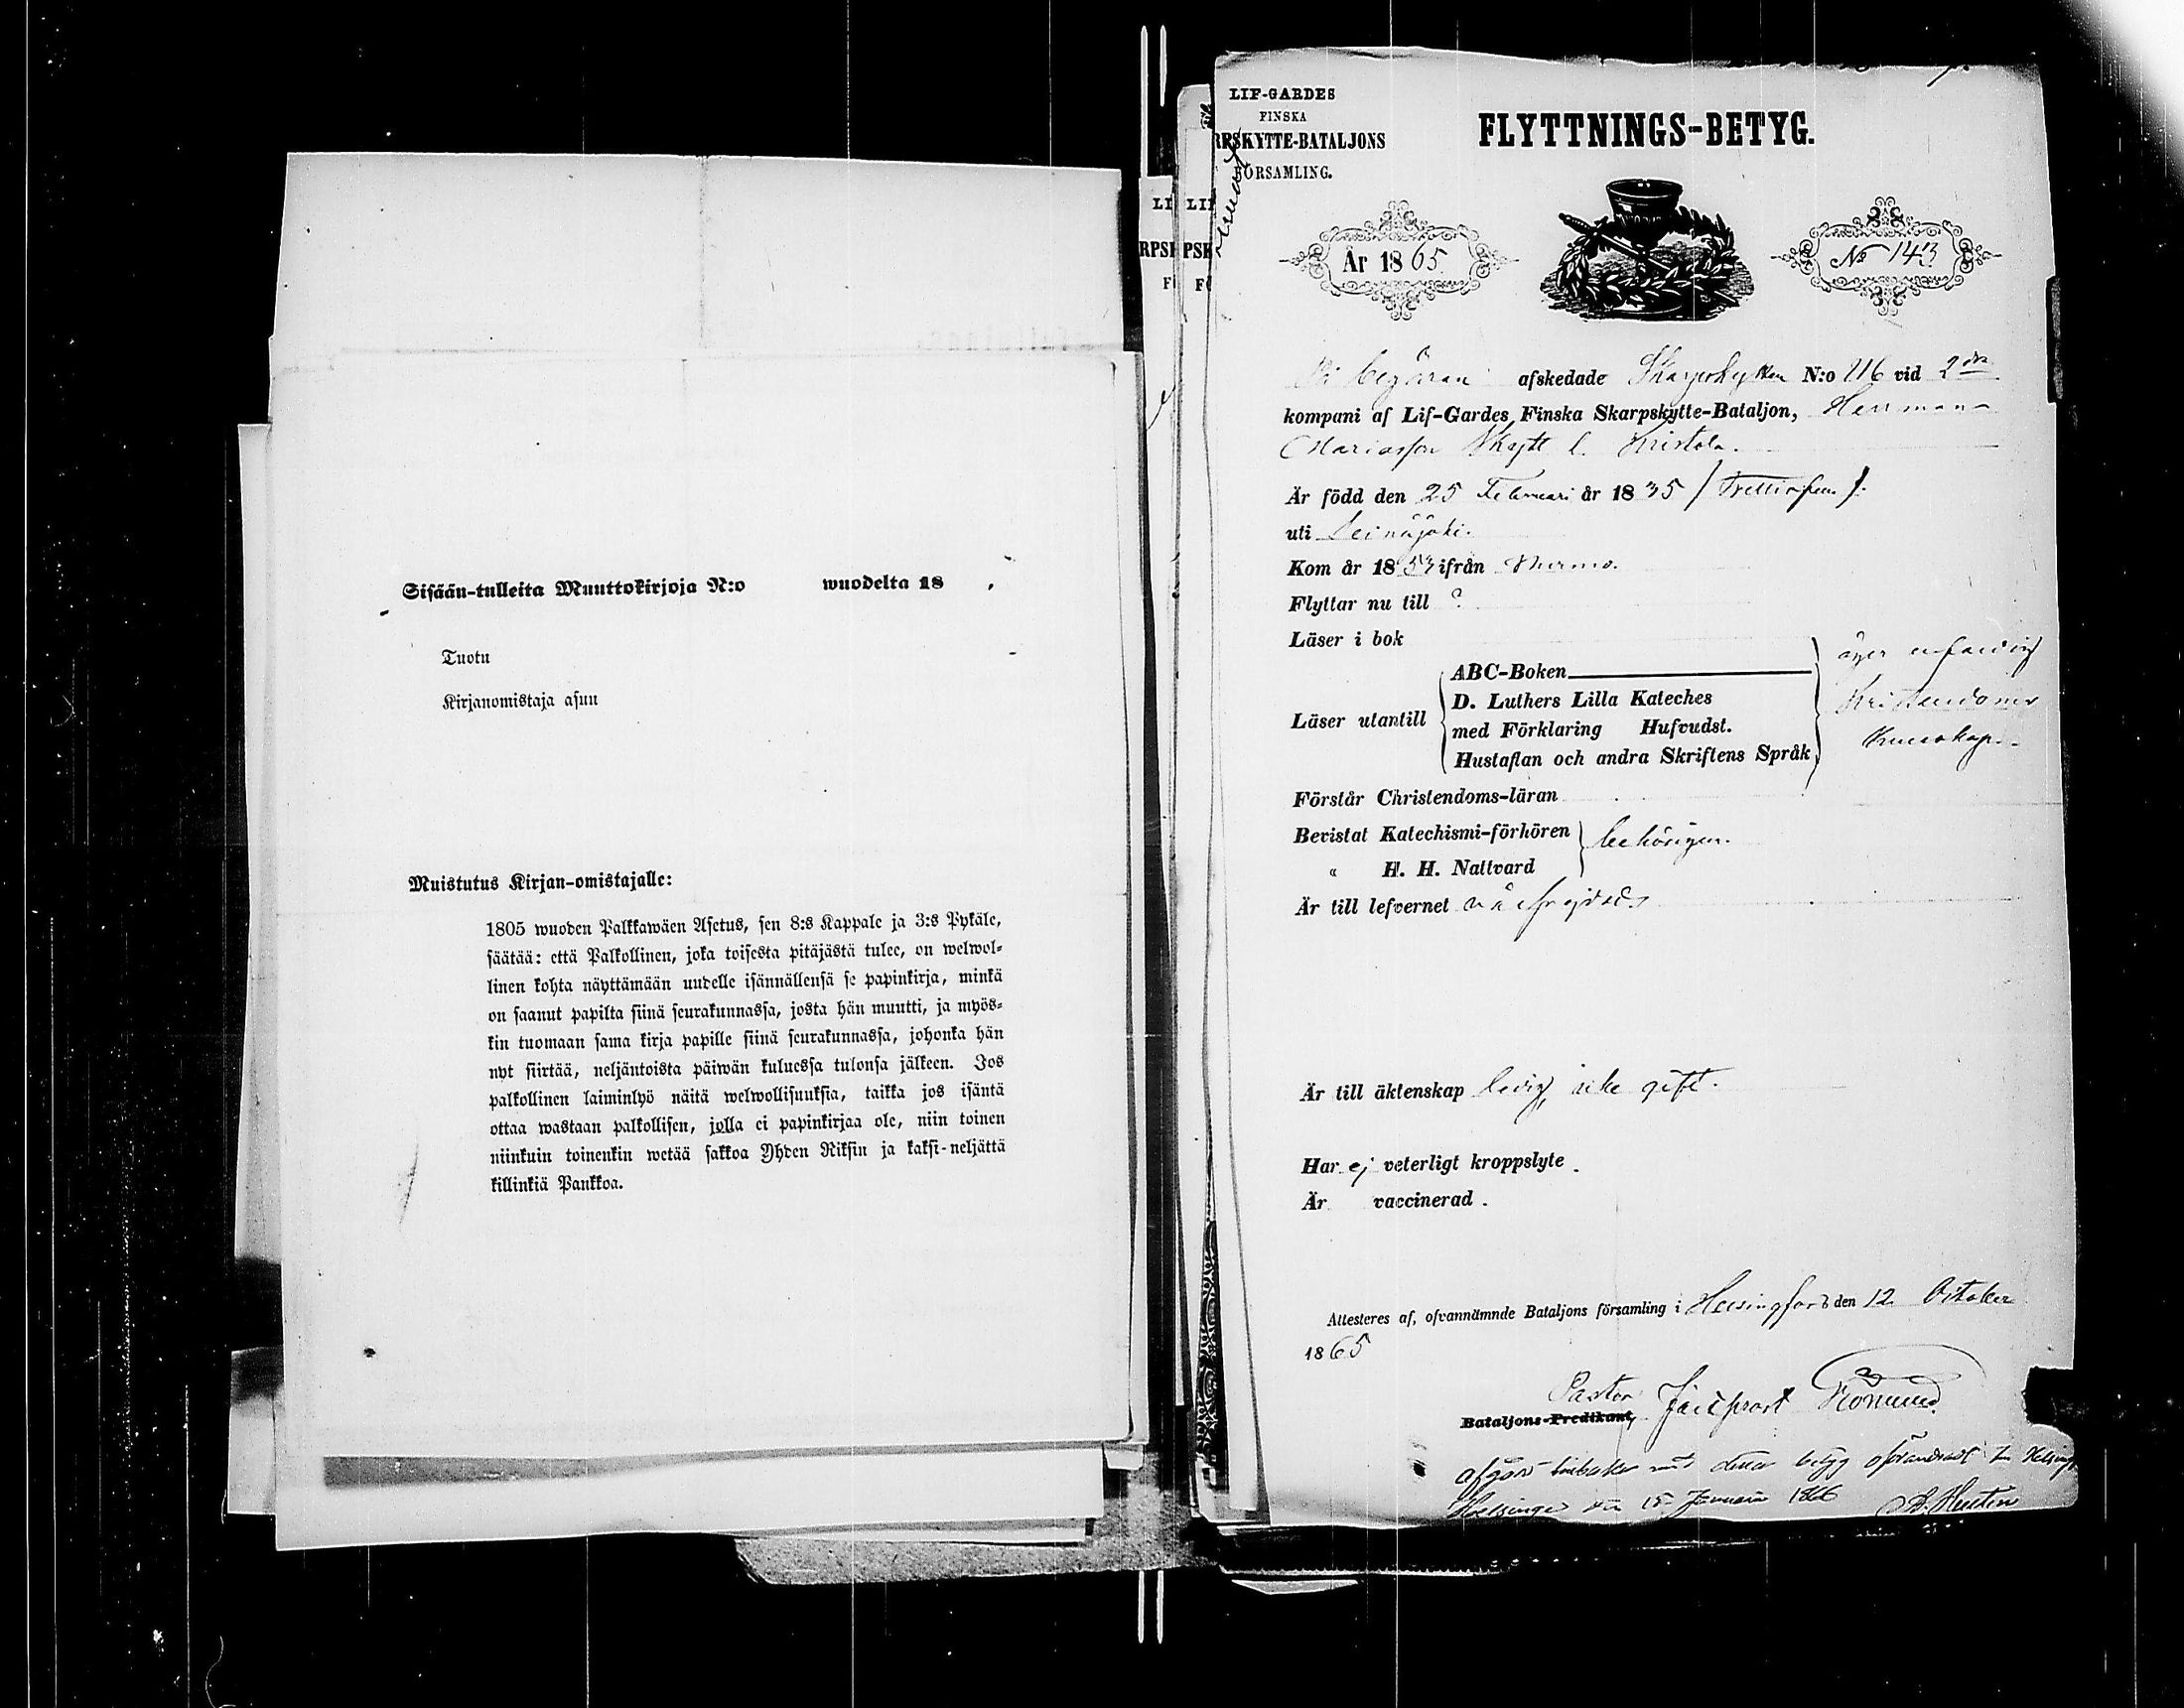 Sisään-tulleita Muuttokirjoja N:o wuodelta 18 .
Tuotu
Kirjanomistaja asuu
Muistutus Kirjan-omistajalle:
1805 wuoden Palkkawäen Asetus, sen 8:s Kappale ja 3:s Pykäle,
säätää: että Palkollinen, joka toisesta pitäjästä tulee, on welwol-
linen kohta näyttämään uudelle isännällensä se papinkirja, minkä
on saanut papilta siinä seurakunnassa, josta hän muutti, ja myös-
kin tuomaan sama kirja papille siinä seurakunnassa, johonka hän
nyt siirtää, neljäntoista päiwän kuluessa tulonsa jälkeen. Jos
palkollinen laiminlyö näitä welwollisuuksia, taikka jos isäntä
ottaa wastaan palkollisen, jolla ei papinkirjaa ole, niin toinen
niinkuin toinenkin wetää sakkoa Yhden Riksin ja kaksi-neljättä
killinkiä Pankkoa.
LIF-GARDES
FINSKA
RPSKYTTE-BATALJONS
FÖRSAMLING.
FLYTTNINGS-BETYG.
År 1865.
No 143
På begäran afskedade Skarpskytten N:o 216 vid 2dra
kompani af Lif-Gardes Finska Skarpskytte-Bataljon, Herrman
Mariasson Skytt l. Kristola.
Är född den 25 Februari år 1835 / Trettiofem /.
uti Seinäjoki.
Kom år 1853 ifrån Nurmo.
Flyttar nu till ?
Läser i bok
Läser utantill
ABC-Boken
D. Luthers Lilla Kateches
med Förklaring Hufvudst.
Hustaflan och andra Skriftens Språk
äger
Kristendoms
kunskap.
Förstår Christendoms-läran
Bevistat Katechismi-förhören
" H. H. Nattvard
behörigen.
Är till lefvernet väl frejdad.
Är till äktenskap ledig, icke gift.
Har ej veterligt kroppslyte.
Är vaccinerad.
Attesteres af, ofvannämnde Bataljons församling i Helsingfors den 12 October
1865
Pastor
Bataljons-Predikant,
afgår tillbaka med detta betyg oförändradt till Helsingf
Helsinge den 15 Januari 1866